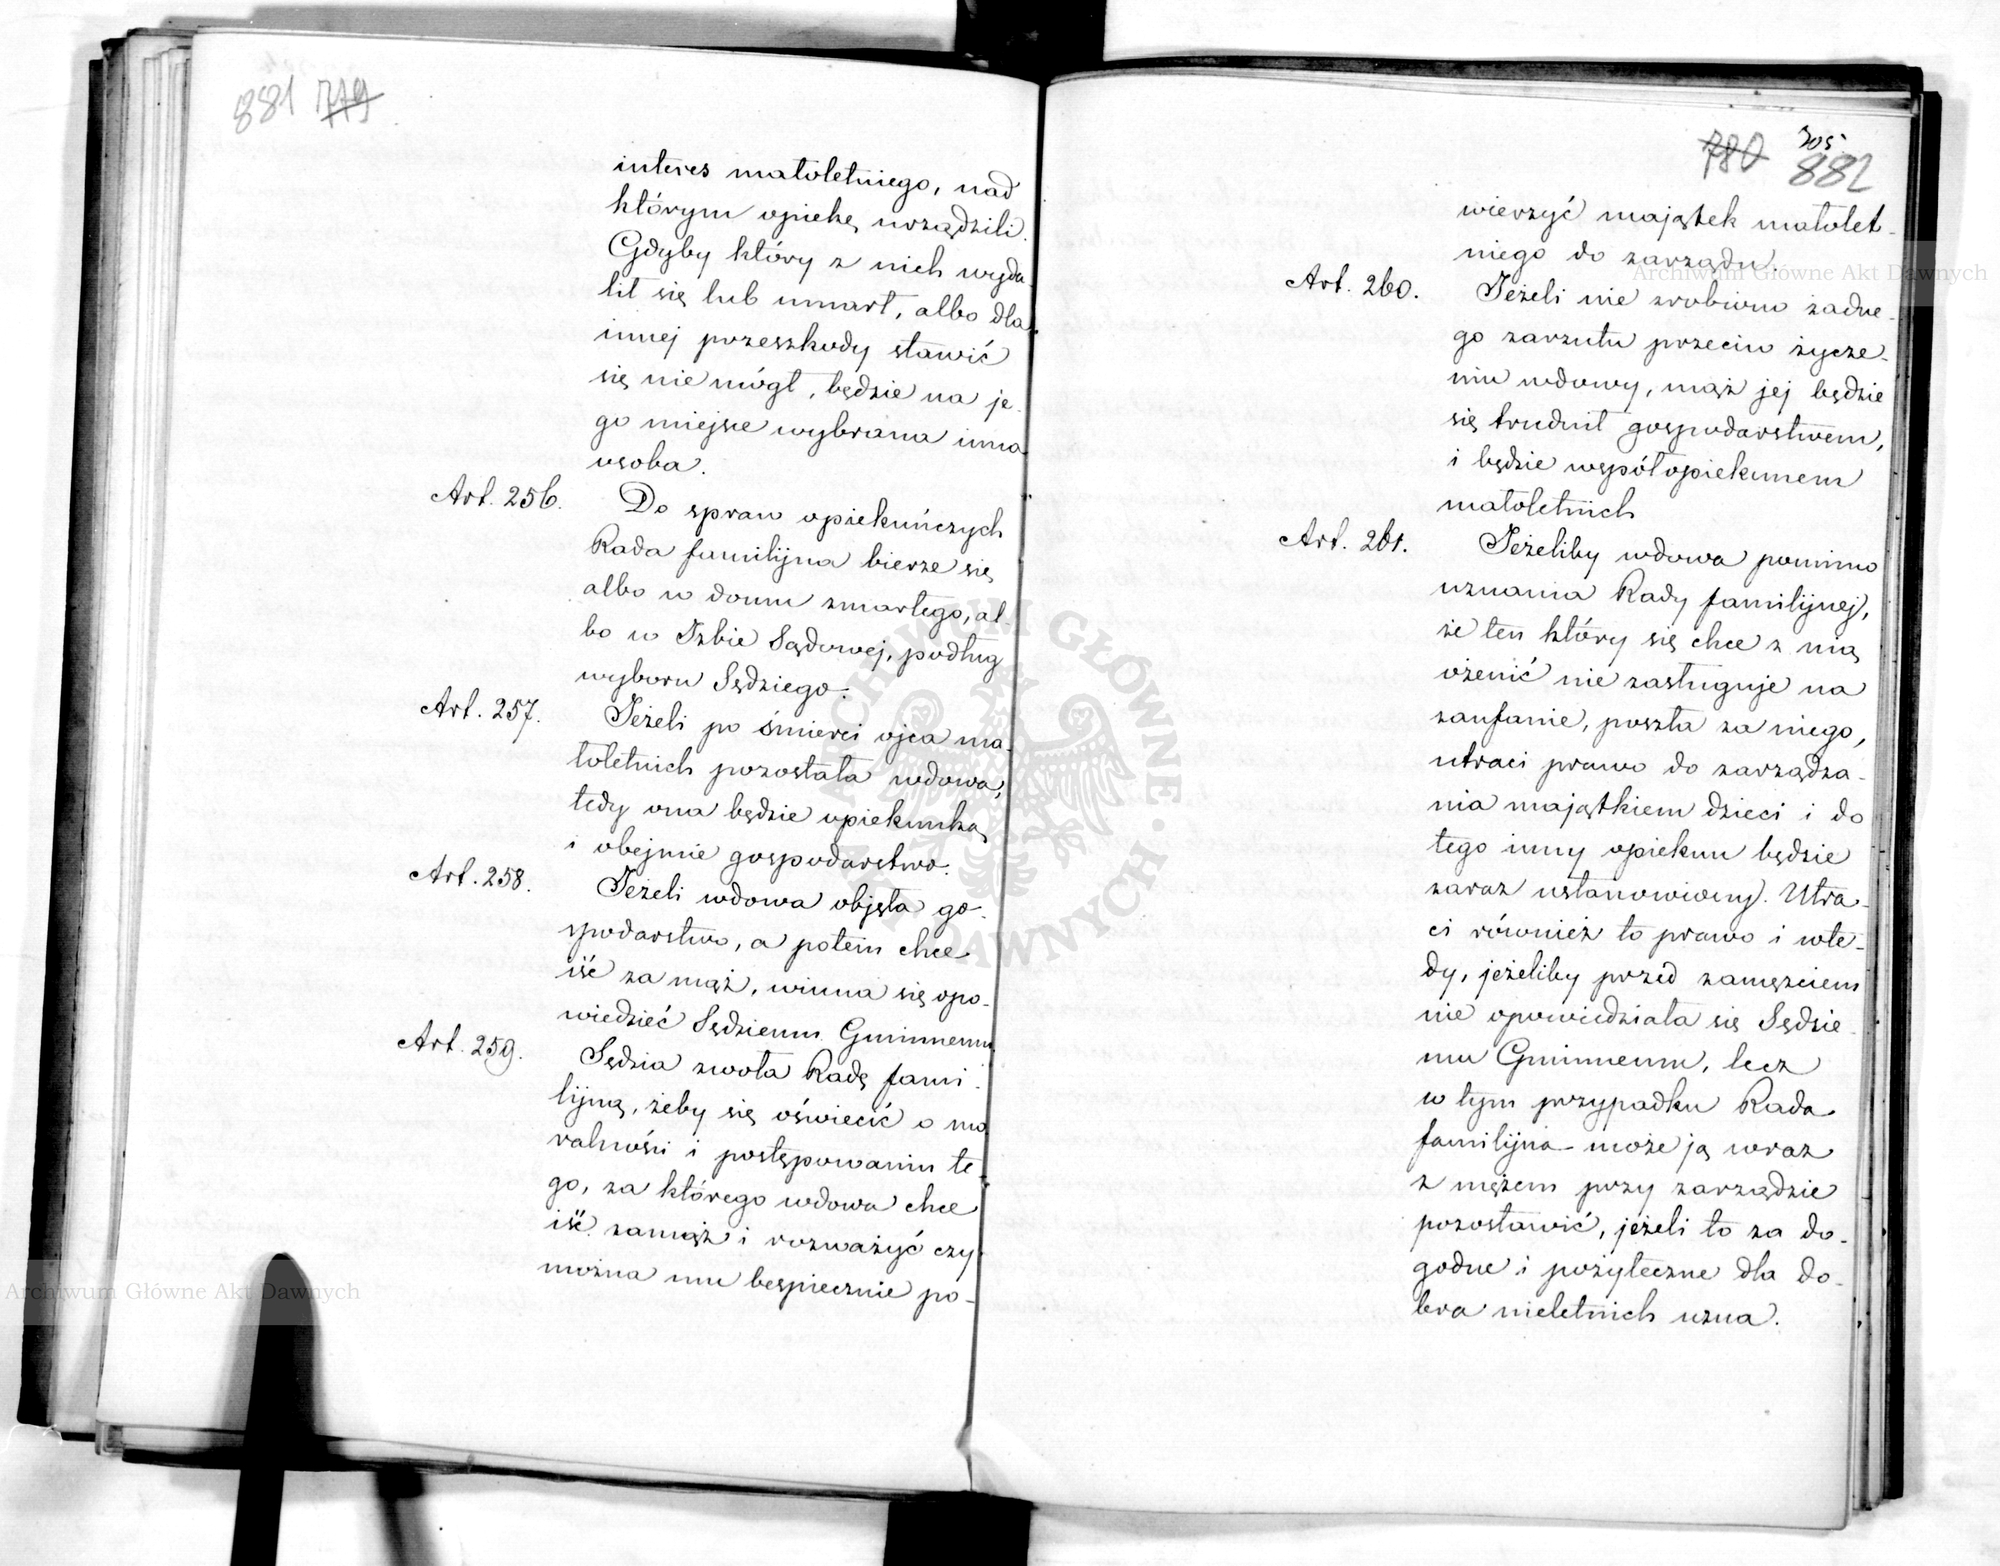 881 779
interes małoletniego, nad
którym opiekę urządzili.
Gdyby który z nich wyda-
lił się lub umarł, albo dla
innej przeszkody stawić
się nie mógł, będzie na je-
go miejsce wybrana inna
osoba.
Art. 256. Do spraw opiekuńczych
Rada familijna bierze się
albo w domu zmarłego, al-
bo w Izbie Sądowej, podług
wyboru Sędziego.
Art. 257. Jeżeli po śmierci ojca ma-
łoletnich pozostała wdowa,
tedy ona będzie opiekunką
i obejmie gospodarstwo.
Art. 258. Jeżeli wdowa objęła go-
spodarstwo, a potem chce
iść za mąż, winna się opo-
wiedzieć Sędziemu Gminnemu.
Art. 259. Sędzia zwoła Radę fami-
lijną, żeby się oświecić o mo
ralności i postępowaniu te-
go, za którego wdowa chce
iść zamąż i rozważyć czy
można mu bespiecznie po-
780 305
882
wierzyć majątek małolet-
niego do zarządu.
Art. 260. Jeżeli nie zrobiono żadne-
go zarzutu przeciw życze-
niu wdowy, mąż jej będzie
się trudnił gospodarstwem,
i będzie współopiekunem
małoletnich
Art. 261. Jeżeliby wdowa pomimo
uznania Rady familijnej,
że ten który się chce z nią
ożenić nie zasługuje na
zaufanie, poszła za niego,
utraci prawo do zarządza-
nia majątkiem dzieci i do
tego inny opiekun będzie
zaraz ustanowiony. Utra-
ci również to prawo i wte-
dy, jeżeliby przed zamęściem
nie opowiedziała się Sędzie-
mu Gminnemu, lecz
w tym przypadku Rada
familijna może ją wraz
z mężem przy zarządzie
pozostawić, jeżeli to za do-
godne i pożyteczne dla do-
bra nieletnich uzna.
Archiwum Główne Akt Dawnych
Archiwum Główne Akt Dawnych
ARCHIWUM GŁÓWNE AKT DAWNYCH